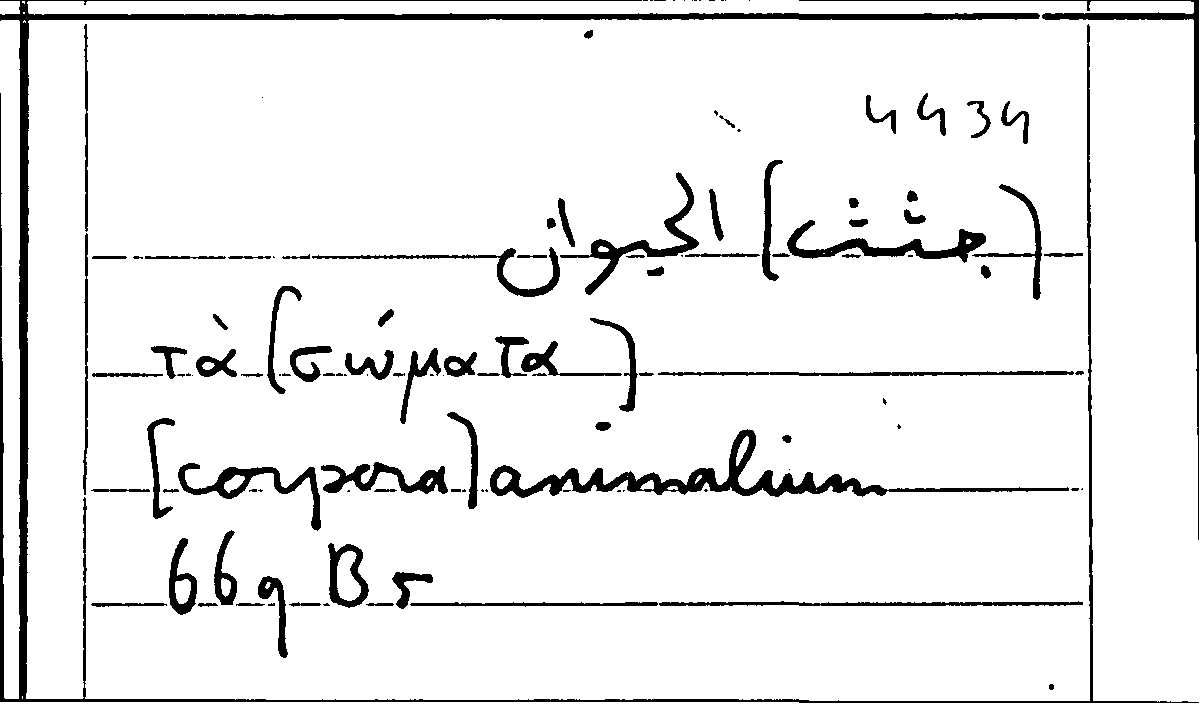 4434
[جثث] الحيوان
τὰ [σώματα]
[corpora] animalium
669 B 5